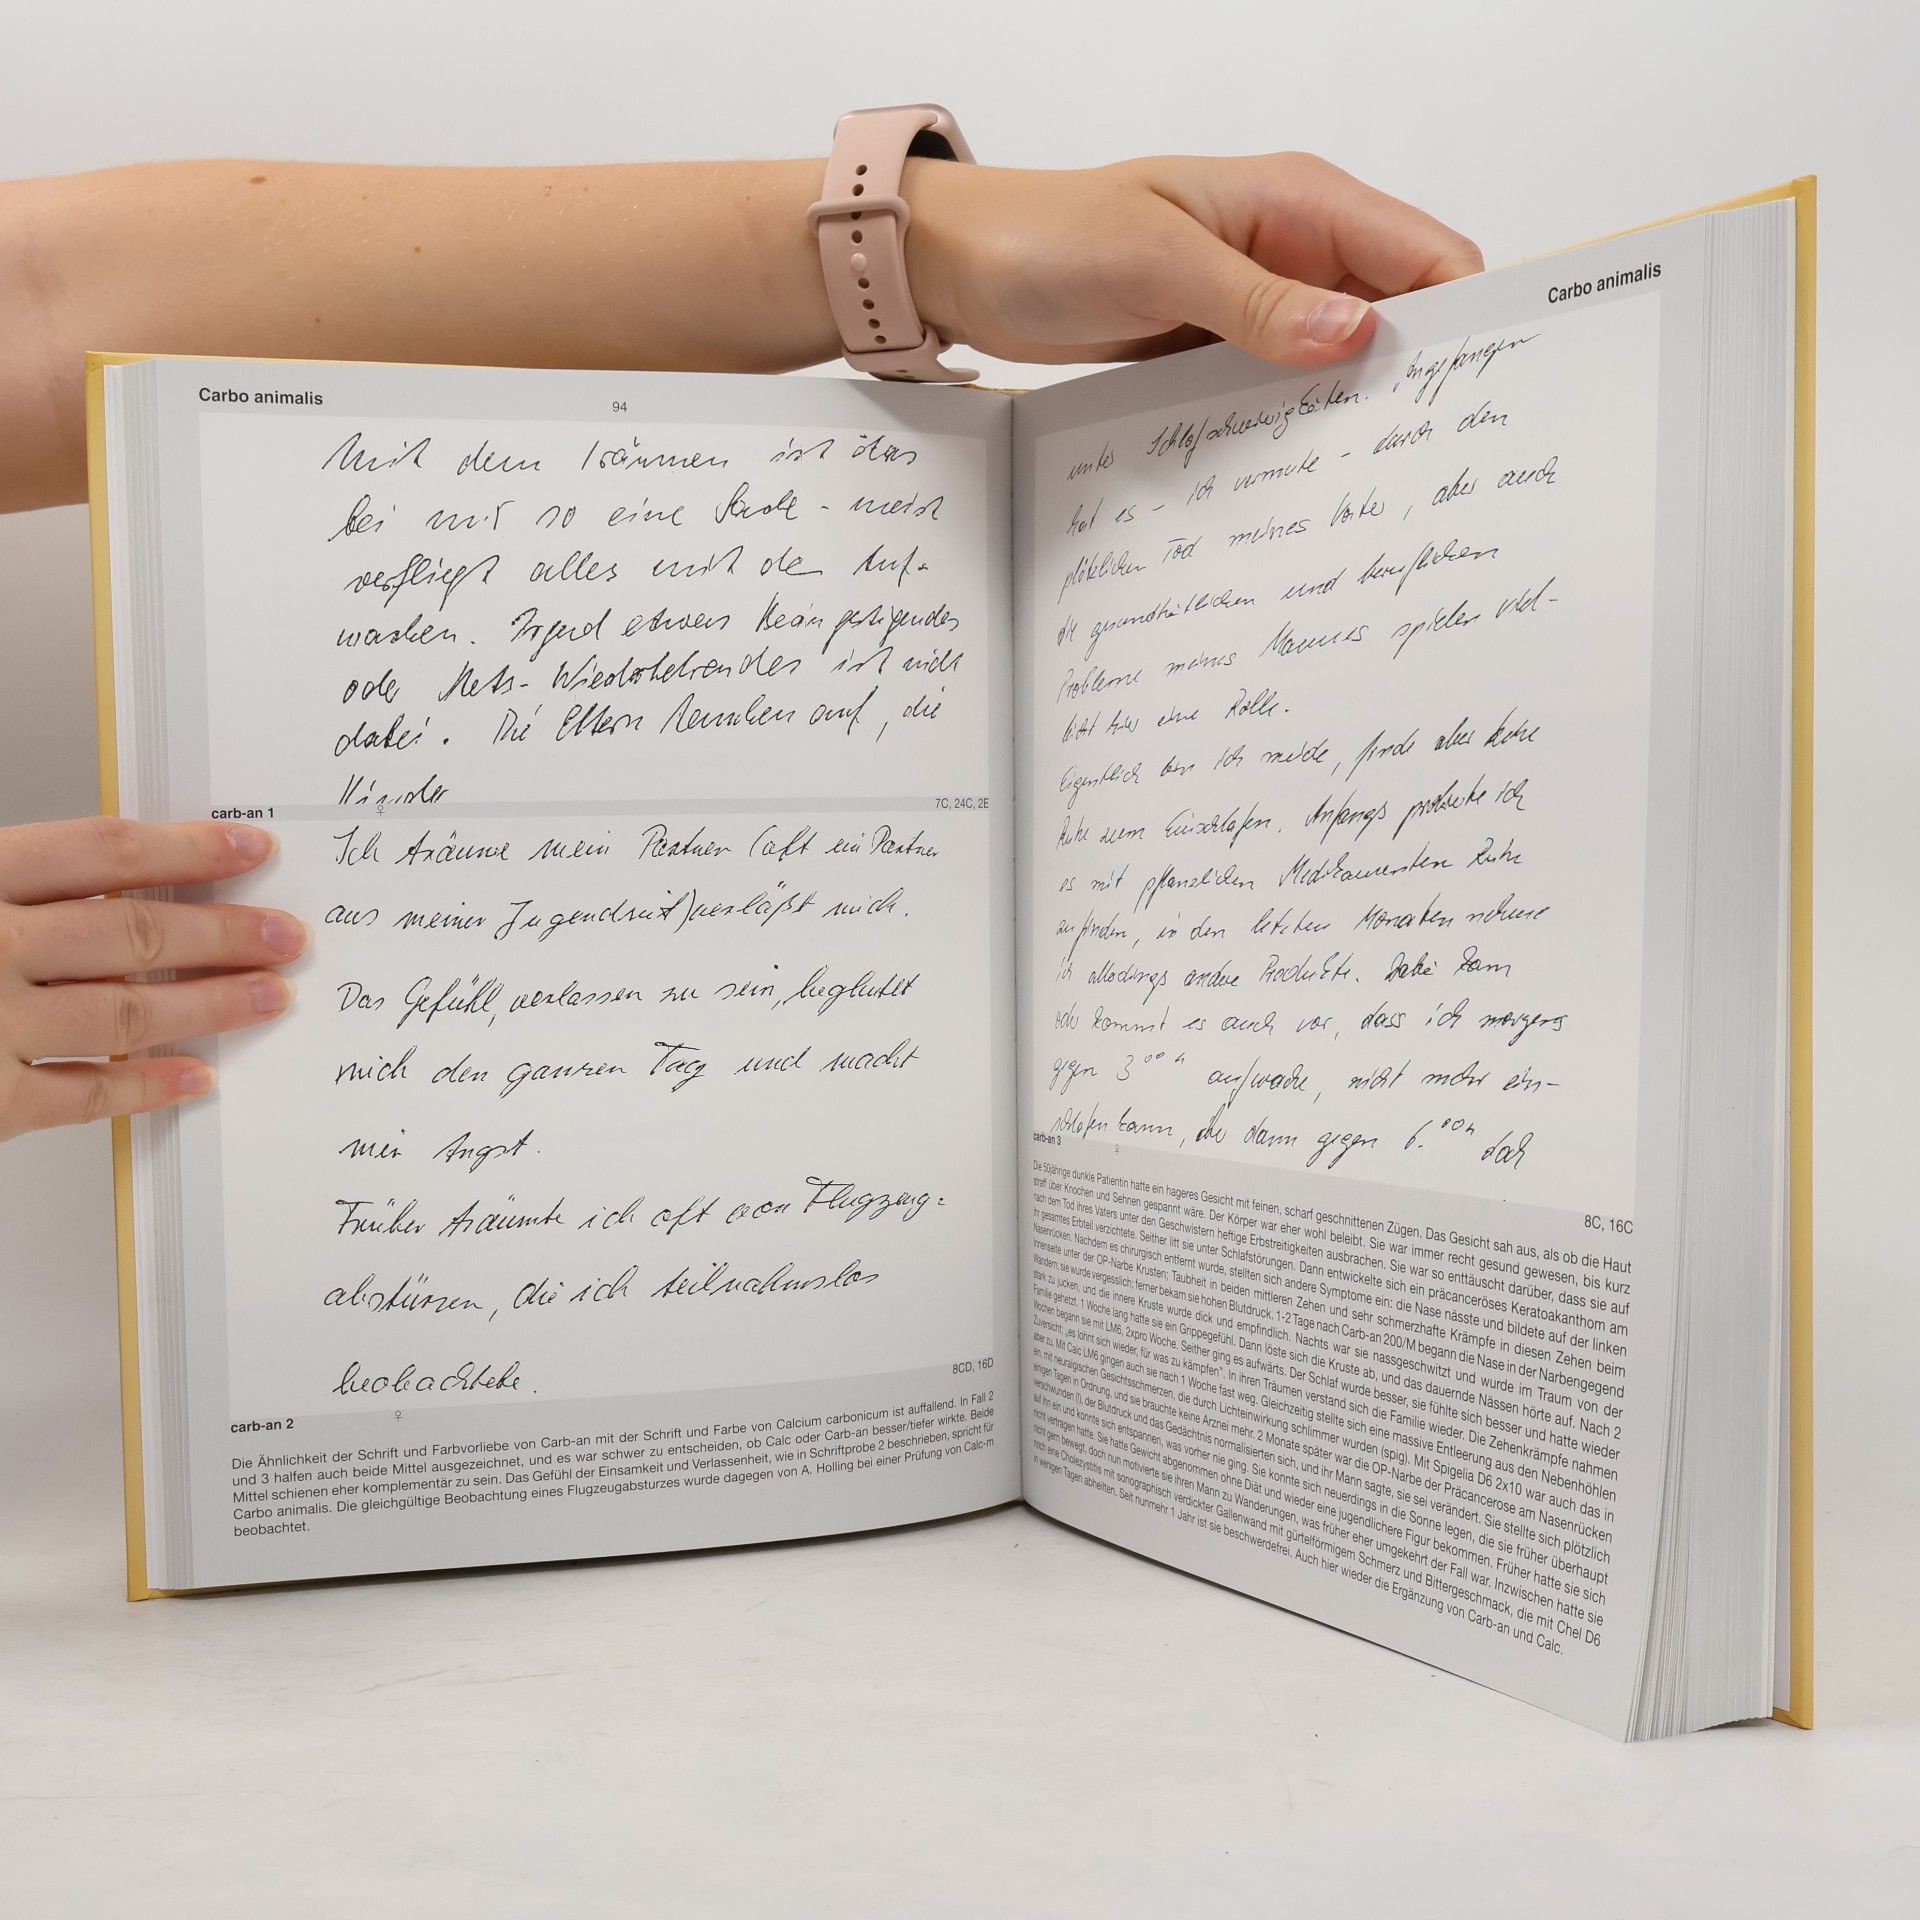 Carbo animalis
94
Mit dem Träumen ist das
bei mir so eine Sache - meist
verfliegt alles mit dem Auf-
wachen. Irgend etwas Beängstigendes
oder stets-Wiederkehrendes ist nicht
dabei. Die Eltern tauchen auf, die
Kinder
carb-an 1
♀
7C, 24C, 2E
Ich träume mein Partner (oft ein Partner
aus meiner Jugendzeit) verläßt mich.
Das Gefühl, verlassen zu sein, begleitet
mich den ganzen Tag und macht
mir Angst.
Früher träumte ich oft von Flugzeug=
abstürzen, die ich teilnahmslos
beobachtete.
carb-an 2
♀
8CD, 16D
Die Ähnlichkeit der Schrift und Farbvorliebe von Carb-an mit der Schrift und Farbe von Calcium carbonicum ist auffallend. In Fall 2
und 3 halfen auch beide Mittel ausgezeichnet, und es war schwer zu entscheiden, ob Calc oder Carb-an besser/tiefer wirkte. Beide
Mittel schienen eher komplementär zu sein. Das Gefühl der Einsamkeit und Verlassenheit, wie in Schriftprobe 2 beschrieben, spricht für
Carbo animalis. Die gleichgültige Beobachtung eines Flugzeugabsturzes wurde dagegen von A. Holling bei einer Prüfung von Calc-m
beobachtet.
Carbo animalis
unter Schlafschwierigkeiten. Angefangen
hat es - ich vermute - durch den
plötzlichen Tod meines Vaters, aber auch
die gesundheitlichen und beruflichen
Probleme meines Mannes spielen viel-
leicht hier eine Rolle.
Eigentlich bin ich müde, finde aber keine
Ruhe zum Einschlafen. Anfangs probierte ich
es mit pflanzlichen Medikamenten Ruhe
zu finden, in den letzten Monaten nehme
ich allerdings andere Produkte. Dabei kam
oder kommt es auch vor, dass ich morgens
gegen 3⁰⁰ h aufwache, nicht mehr ein-
schlafen kann, aber dann gegen 6.⁰⁰ h doch
carb-an 3
♀
8C, 16C
Die 50jährige dunkle Patientin hatte ein hageres Gesicht mit feinen, scharf geschnittenen Zügen. Das Gesicht sah aus, als ob die Haut
straff über Knochen und Sehnen gespannt wäre. Der Körper war eher wohl beleibt. Sie war immer recht gesund gewesen, bis kurz
nach dem Tod ihres Vaters unter den Geschwistern heftige Erbstreitigkeiten ausbrachen. Sie war so enttäuscht darüber, dass sie auf
ihr gesamtes Erbteil verzichtete. Seither litt sie unter Schlafstörungen. Dann entwickelte sich ein präcanceröses Keratoakanthom am
Nasenrücken. Nachdem es chirurgisch entfernt wurde, stellten sich andere Symptome ein: die Nase nässte und bildete auf der linken
Innenseite unter der OP-Narbe Krusten; Taubheit in beiden mittleren Zehen und sehr schmerzhafte Krämpfe in diesen Zehen beim
Wandern; sie wurde vergesslich; ferner bekam sie hohen Blutdruck. 1-2 Tage nach Carb-an 200/M begann die Nase in der Narbengegend
stark zu jucken, und die innere Kruste wurde dick und empfindlich. Nachts war sie nassgeschwitzt und wurde im Traum von der
Familie gehetzt. 1 Woche lang hatte sie ein Grippegefühl. Dann löste sich die Kruste ab, und das dauernde Nässen hörte auf. Nach 2
Wochen begann sie mit LM6, 2xpro Woche. Seither ging es aufwärts. Der Schlaf wurde besser, sie fühlte sich besser und hatte wieder
Zuversicht: „es lohnt sich wieder, für was zu kämpfen". In ihren Träumen verstand sich die Familie wieder. Die Zehenkrämpfe nahmen
aber zu. Mit Calc LM6 gingen auch sie nach 1 Woche fast weg. Gleichzeitig stellte sich eine massive Entleerung aus den Nebenhöhlen
ein, mit neuralgischen Gesichtsschmerzen, die durch Lichteinwirkung schlimmer wurden (spig). Mit Spigelia D6 2x10 war auch das in
einigen Tagen in Ordnung, und sie brauchte keine Arznei mehr. 2 Monate später war die OP-Narbe der Präcancerose am Nasenrücken
verschwunden (!), der Blutdruck und das Gedächtnis normalisierten sich, und ihr Mann sagte, sie sei verändert. Sie stellte sich plötzlich
auf ihn ein und konnte sich entspannen, was vorher nie ging. Sie konnte sich neuerdings in die Sonne legen, die sie früher überhaupt
nicht vertragen hatte. Sie hatte Gewicht abgenommen ohne Diät und wieder eine jugendlichere Figur bekommen. Früher hatte sie sich
nicht gern bewegt, doch nun motivierte sie ihren Mann zu Wanderungen, was früher eher umgekehrt der Fall war. Inzwischen hatte sie
noch eine Cholezystitis mit sonographisch verdickter Gallenwand mit gürtelförmigem Schmerz und Bittergeschmack, die mit Chel D6
in wenigen Tagen abheilten. Seit nunmehr 1 Jahr ist sie beschwerdefrei. Auch hier wieder die Ergänzung von Carb-an und Calc.